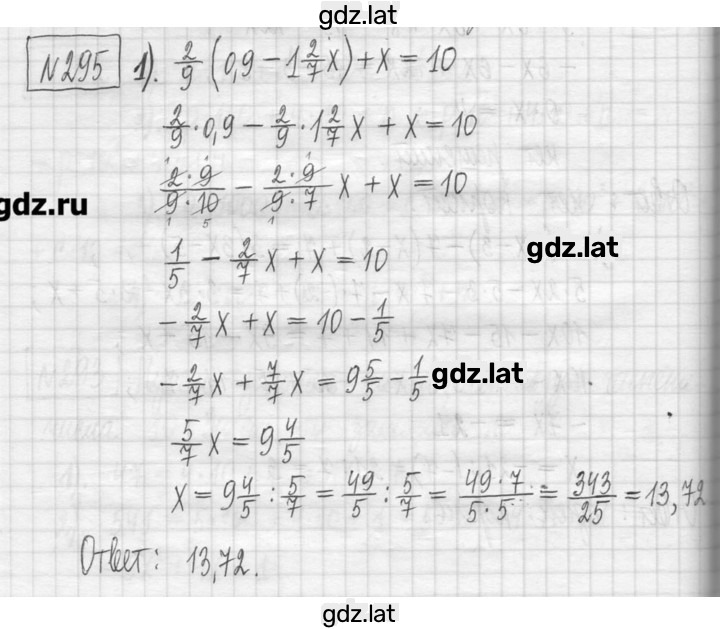 gdz.lat
№295 1). 2/9 (0,9 − 1 2/7 x) + x = 10
2/9 · 0,9 − 2/9 · 1 2/7 x + x = 10
2·9/9·10 − 2·9/9·7 x + x = 10
gdz.ru
gdz.lat
1/5 − 2/7 x + x = 10
− 2/7 x + x = 10 − 1/5
− 2/7 x + 7/7 x = 9 5/5 − 1/5
gdz.lat
5/7 x = 9 4/5
x = 9 4/5 : 5/7 = 49/5 : 5/7 = 49·7/5·5 = 343/25 = 13,72
Ответ: 13,72.
gdz.lat